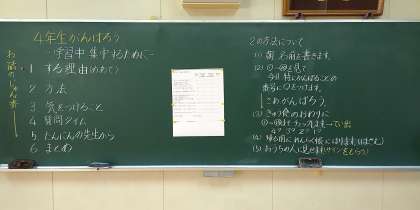 4年生がんばろう
―学習中 集中するために―
お話のじゅん番
1 する理由(めあて)
2 方法
3 気をつけること
4 質問タイム
5 たんにんの先生から
6 まとめ
2の方法について
(1) 朝 名前を書きます。
(2) ①〜⑩を見て
今日 特にがんばることの
番号に○をつけます。
これがんばろう。
(3) きゅう食のおわりに
チェックします→てい出
(4) 帰る前に
(5) おうちの人に見せます(サインをもらう)